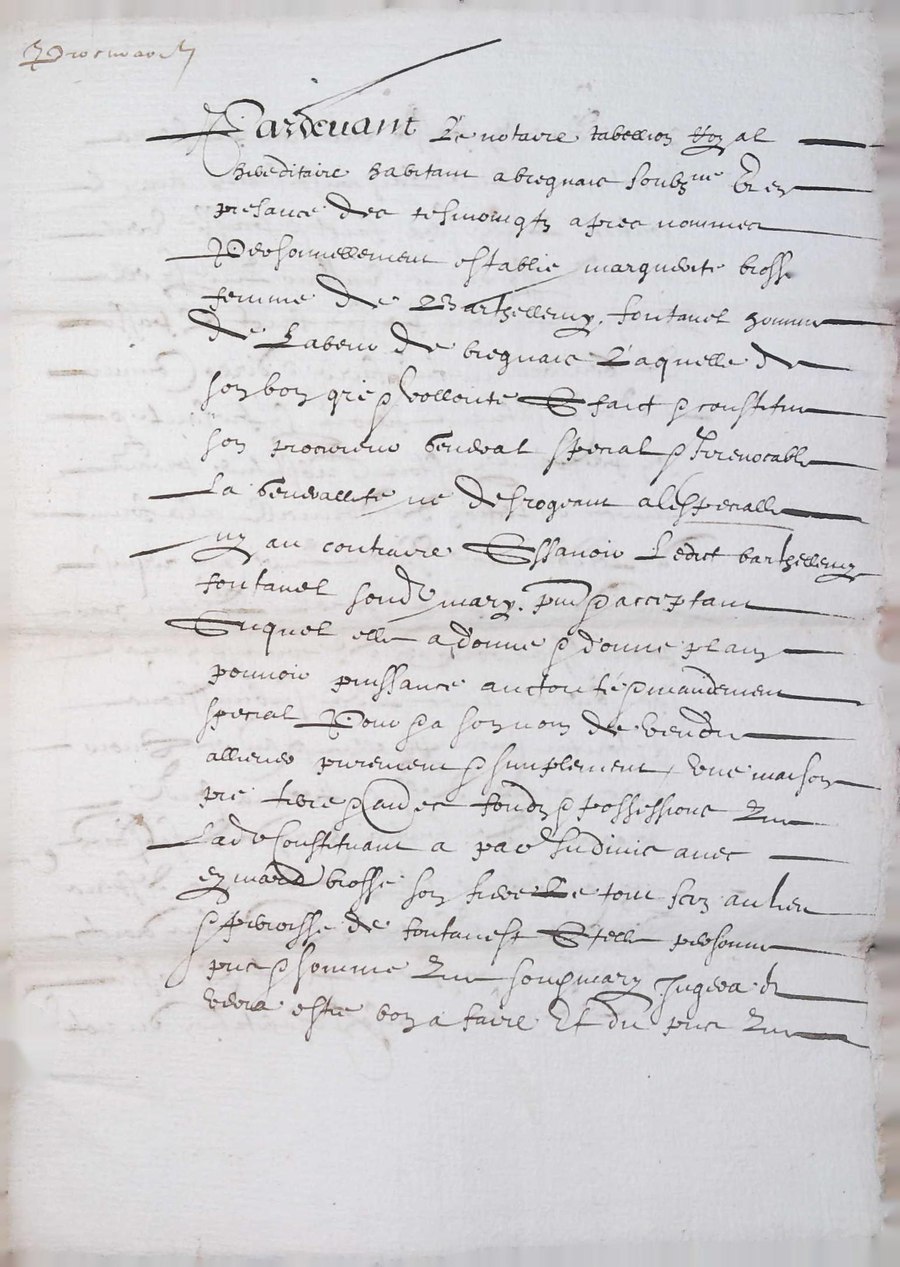 Procura͠on
Pardevant Le notaire tabellion Royal
hereditaire habitant a brignais soubzne & en
presance des tesmoingtz apres nommes
Personnellement establie marguerite brosse
femme de Barthellemy fontanel homme
de Labeur de brignais Laquelle de
son bon gre & vollonte A faict & constitue
son procureur General special & Irrevocable
La Generallite ne desrogeant a lespeciallite
ny au contraire Assavoir Ledict barthellemy
fontanel sond mary pnt & acceptant
Auquel elle a donne & donne plain
pouvoir puissance auctorité & mandement
special Pour & a son nom de vendre
alliener purement & simplement une maison
pre terre & autres fondz & possessions que
Lade Constituant a par Indivis avec
brosse son frere Le tout scis au lieu
& parroisse de fontanest A telle personne
pris & somme que sond mary Jugera &
verra estre bon a faire Et du pris que